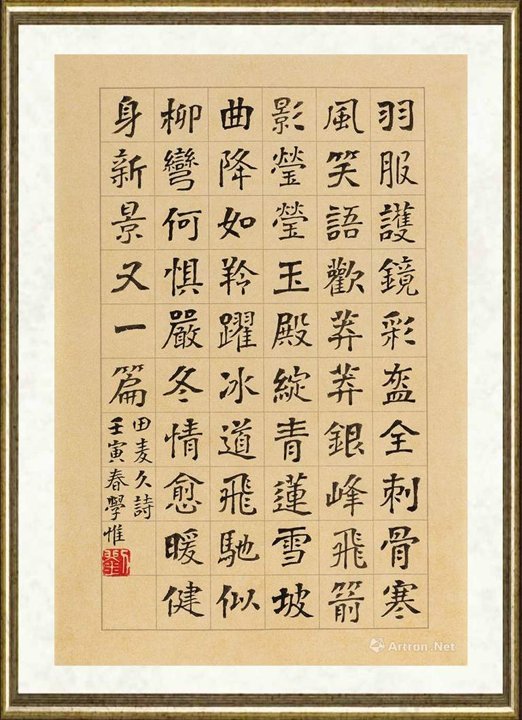 羽服護鏡彩盔全刺骨寒
風笑語歡莽莽銀峰飛箭
影瑩瑩玉殿綻青蓮雪坡
曲降如羚躍冰道飛馳似
柳彎何懼嚴冬情愈暖健
身新景又一篇
田麦久詩
壬寅春學惟
Artron.Net